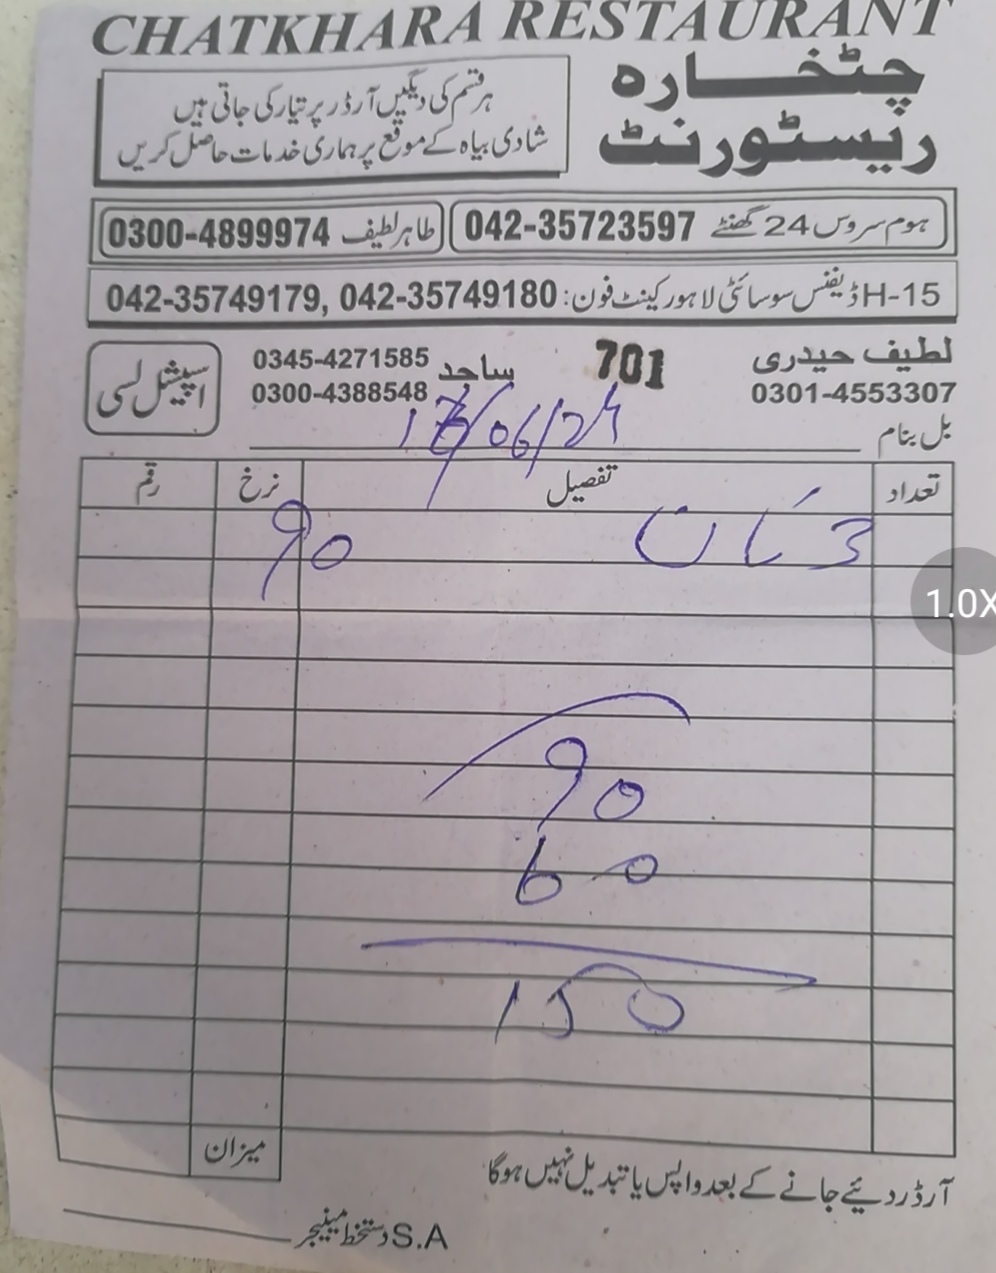 CHATKHARA RESTAURANT
چٹخارہ
ریسٹورنٹ
ہر قسم کی دیگیں آرڈر پر تیار کی جاتی ہیں
شادی بیاہ کے موقع پر ہماری خدمات حاصل کریں
ہوم سروس 24 گھنٹے 042-35723597
طاہر لطیف 0300-4899974
H-15 ڈیفنس سوسائٹی لاہور کینٹ فون: 042-35749180 ,042-35749179
لطیف حیدری
0301-4553307
701
ساجد
0345-4271585
0300-4388548
اسپیشل لسی
بل بنام
06/24
تعداد تفصیل نرخ رقم
3 نان 90
90
60
150
میزان
آرڈر دئیے جانے کے بعد واپس یا تبدیل نہیں ہوگا
S.A دستخط مینیجر
1.0X